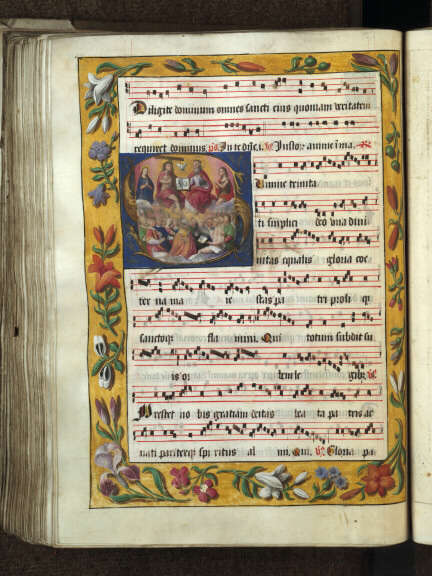 Diligite dominum omnes sancti eius quoniam veritatem
requiret dominus. ps. In te dñe. i. ℣. Justor anime ĩ ma.
Summe trinita
ti simplici deo vna divi
nitas equalis gloria coe
ter na ma ie stas pa tri proli q
sanctoq fla mini. Qui totum subdit su
is or bem le gib ℣.
Prestet no bis gratiam deitas bea ta pa tris ac
nati pariterq spi ritus al mi. Qui. ℣. Gloria pa